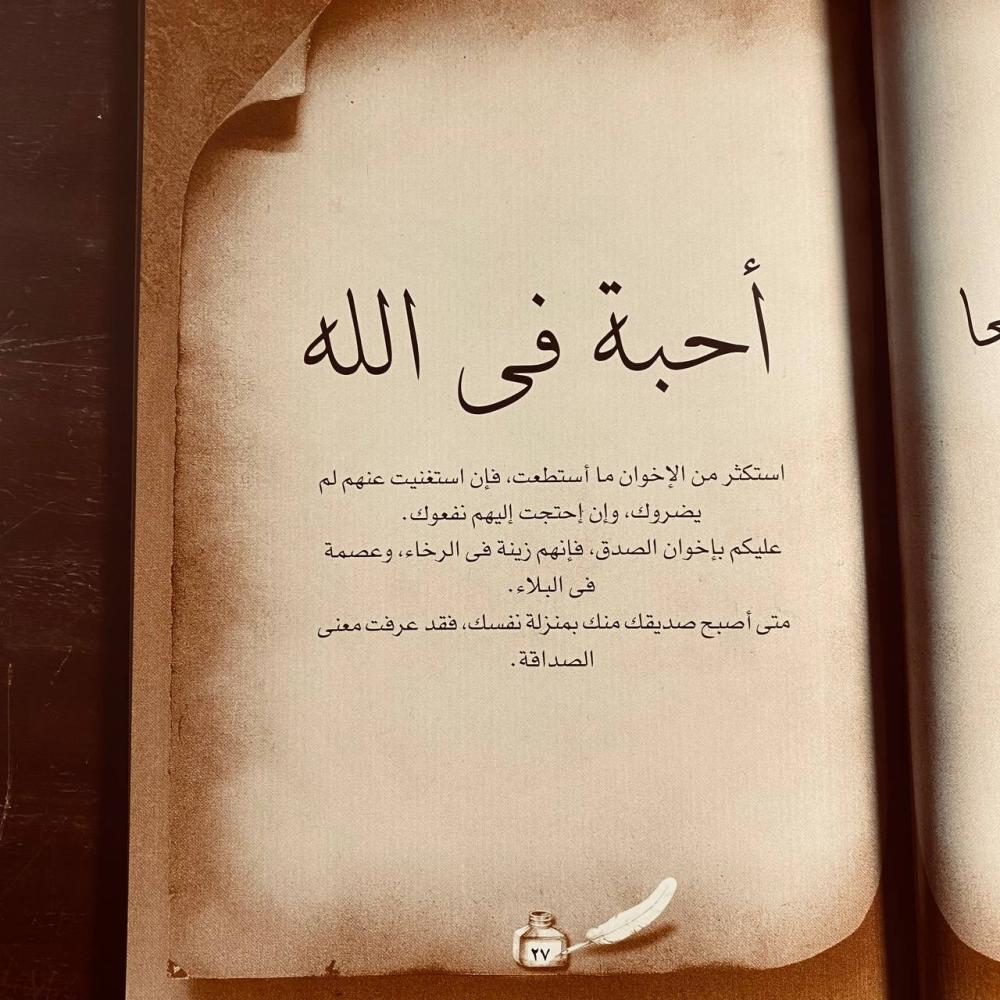 أحبة فى الله
استكثر من الإخوان ما أستطعت، فإن استغنيت عنهم لم
يضروك، وإن إحتجت إليهم نفعوك.
عليكم بإخوان الصدق، فإنهم زينة فى الرخاء، وعصمة
فى البلاء.
متى أصبح صديقك منك بمنزلة نفسك، فقد عرفت معنى
الصداقة.
٢٧